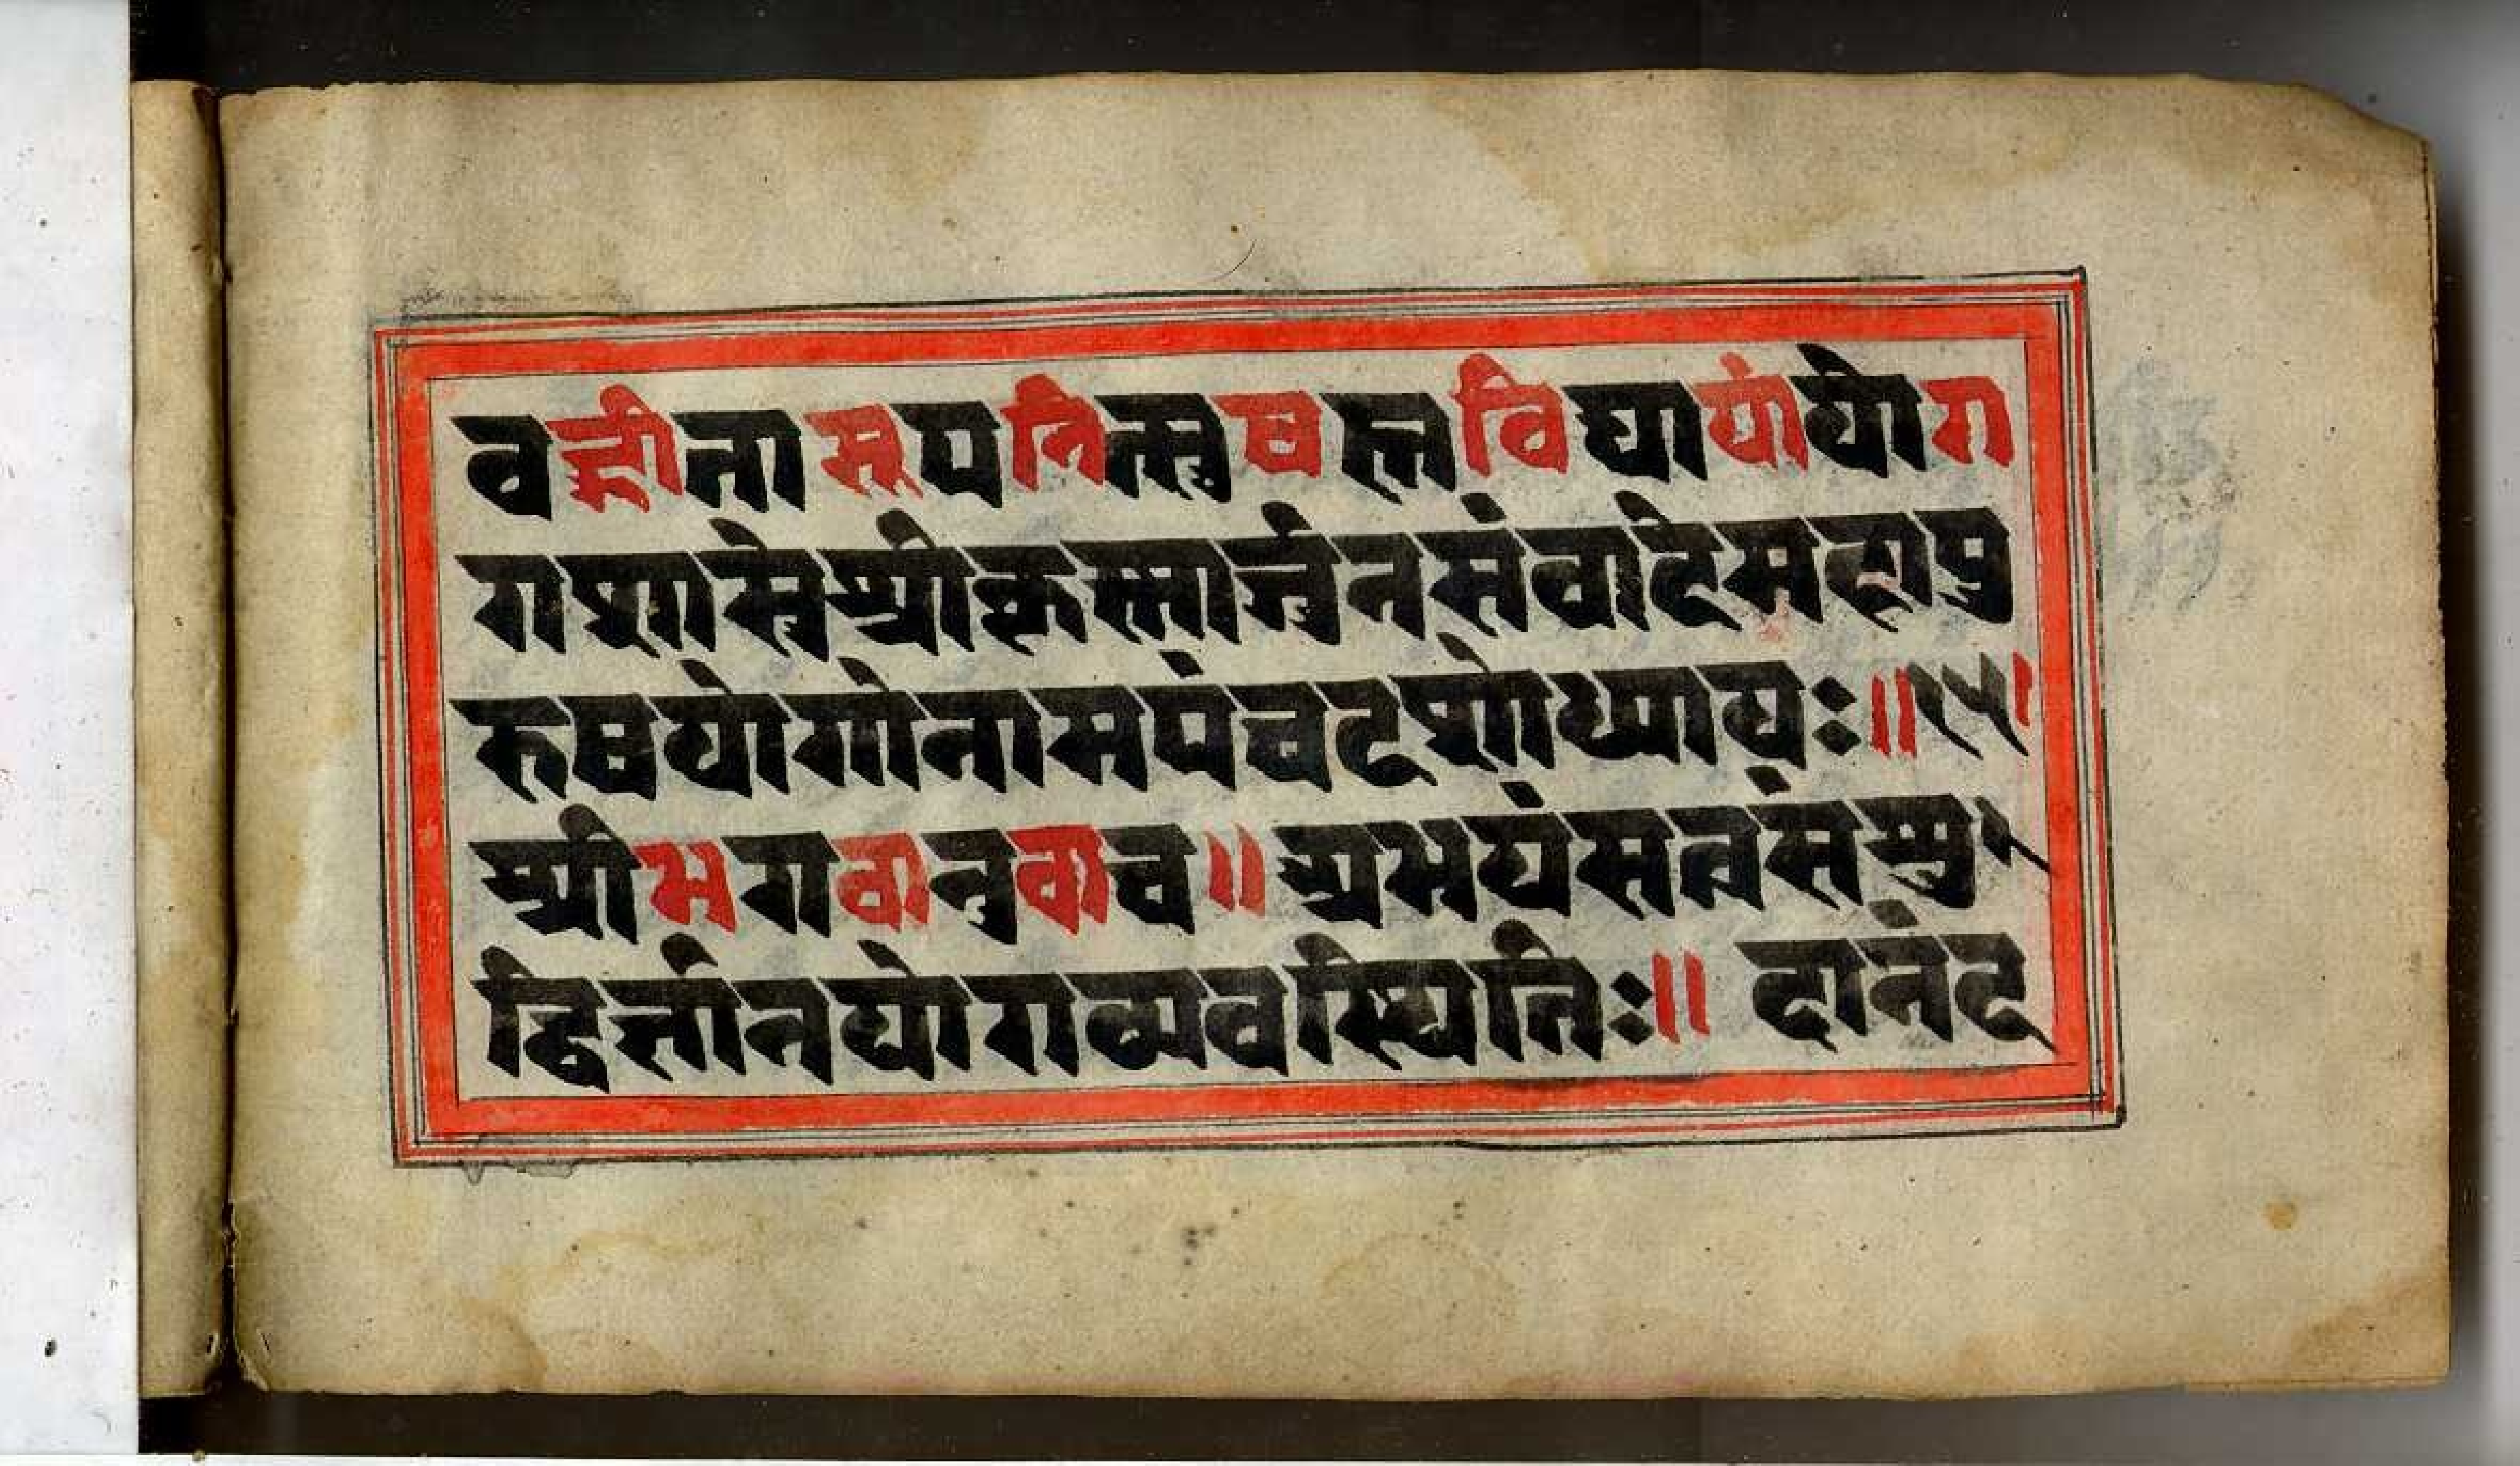 वद्गीतासूपनिसुषत्सुविद्यायांयोग
गशास्रेश्रीकृस्मार्जुनसंवादेमहापु
रुषयोगोनामपंचदशोध्यायः॥१५।
श्रीभगवानवाच॥अभयंसत्वसंसुद्धि
र्ज्ञितीनयोगव्यवस्थितिः॥ दानंद